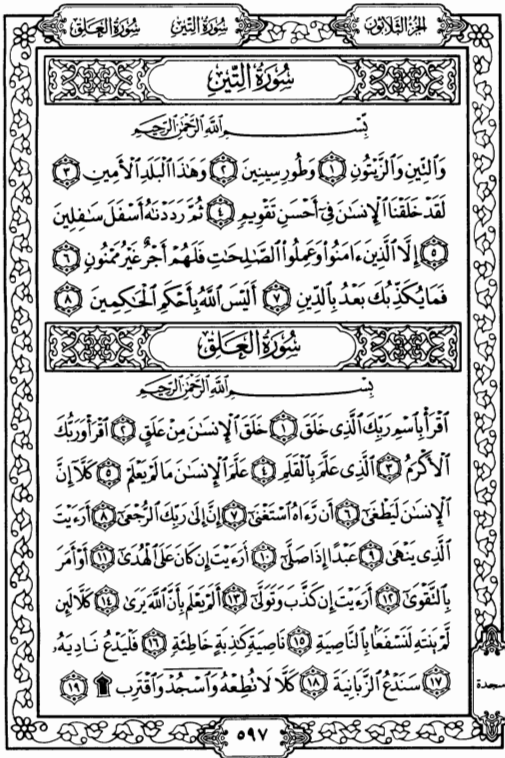 سُورَةُ العَلَق سُورَةُ التِّين الجُزءُ الثَّلَاثُون
سُورَةُ التِّينِ
بِسْمِ اللَّهِ الرَّحْمَٰنِ الرَّحِيمِ
وَٱلتِّينِ وَٱلزَّيْتُونِ ١ وَطُورِ سِينِينَ ٢ وَهَٰذَا ٱلْبَلَدِ ٱلْأَمِينِ ٣
لَقَدْ خَلَقْنَا ٱلْإِنسَٰنَ فِىٓ أَحْسَنِ تَقْوِيمٍ ٤ ثُمَّ رَدَدْنَٰهُ أَسْفَلَ سَٰفِلِينَ
٥ إِلَّا ٱلَّذِينَ ءَامَنُوا۟ وَعَمِلُوا۟ ٱلصَّٰلِحَٰتِ فَلَهُمْ أَجْرٌ غَيْرُ مَمْنُونٍ ٦
فَمَا يُكَذِّبُكَ بَعْدُ بِٱلدِّينِ ٧ أَلَيْسَ ٱللَّهُ بِأَحْكَمِ ٱلْحَٰكِمِينَ ٨
سُورَةُ العَلَقِ
بِسْمِ اللَّهِ الرَّحْمَٰنِ الرَّحِيمِ
ٱقْرَأْ بِٱسْمِ رَبِّكَ ٱلَّذِى خَلَقَ ١ خَلَقَ ٱلْإِنسَٰنَ مِنْ عَلَقٍ ٢ ٱقْرَأْ وَرَبُّكَ
ٱلْأَكْرَمُ ٣ ٱلَّذِى عَلَّمَ بِٱلْقَلَمِ ٤ عَلَّمَ ٱلْإِنسَٰنَ مَا لَمْ يَعْلَمْ ٥ كَلَّآ إِنَّ
ٱلْإِنسَٰنَ لَيَطْغَىٰٓ ٦ أَن رَّءَاهُ ٱسْتَغْنَىٰٓ ٧ إِنَّ إِلَىٰ رَبِّكَ ٱلرُّجْعَىٰٓ ٨ أَرَءَيْتَ
ٱلَّذِى يَنْهَىٰ ٩ عَبْدًا إِذَا صَلَّىٰٓ ١٠ أَرَءَيْتَ إِن كَانَ عَلَى ٱلْهُدَىٰٓ ١١ أَوْ أَمَرَ
بِٱلتَّقْوَىٰٓ ١٢ أَرَءَيْتَ إِن كَذَّبَ وَتَوَلَّىٰٓ ١٣ أَلَمْ يَعْلَم بِأَنَّ ٱللَّهَ يَرَىٰ ١٤ كَلَّا لَئِن
لَّمْ يَنتَهِ لَنَسْفَعًۢا بِٱلنَّاصِيَةِ ١٥ نَاصِيَةٍ كَٰذِبَةٍ خَاطِئَةٍ ١٦ فَلْيَدْعُ نَادِيَهُۥ
١٧ سَنَدْعُ ٱلزَّبَانِيَةَ ١٨ كَلَّا لَا تُطِعْهُ وَٱسْجُدْ وَٱقْتَرِب ۩ ١٩
سجدة
٥٩٧